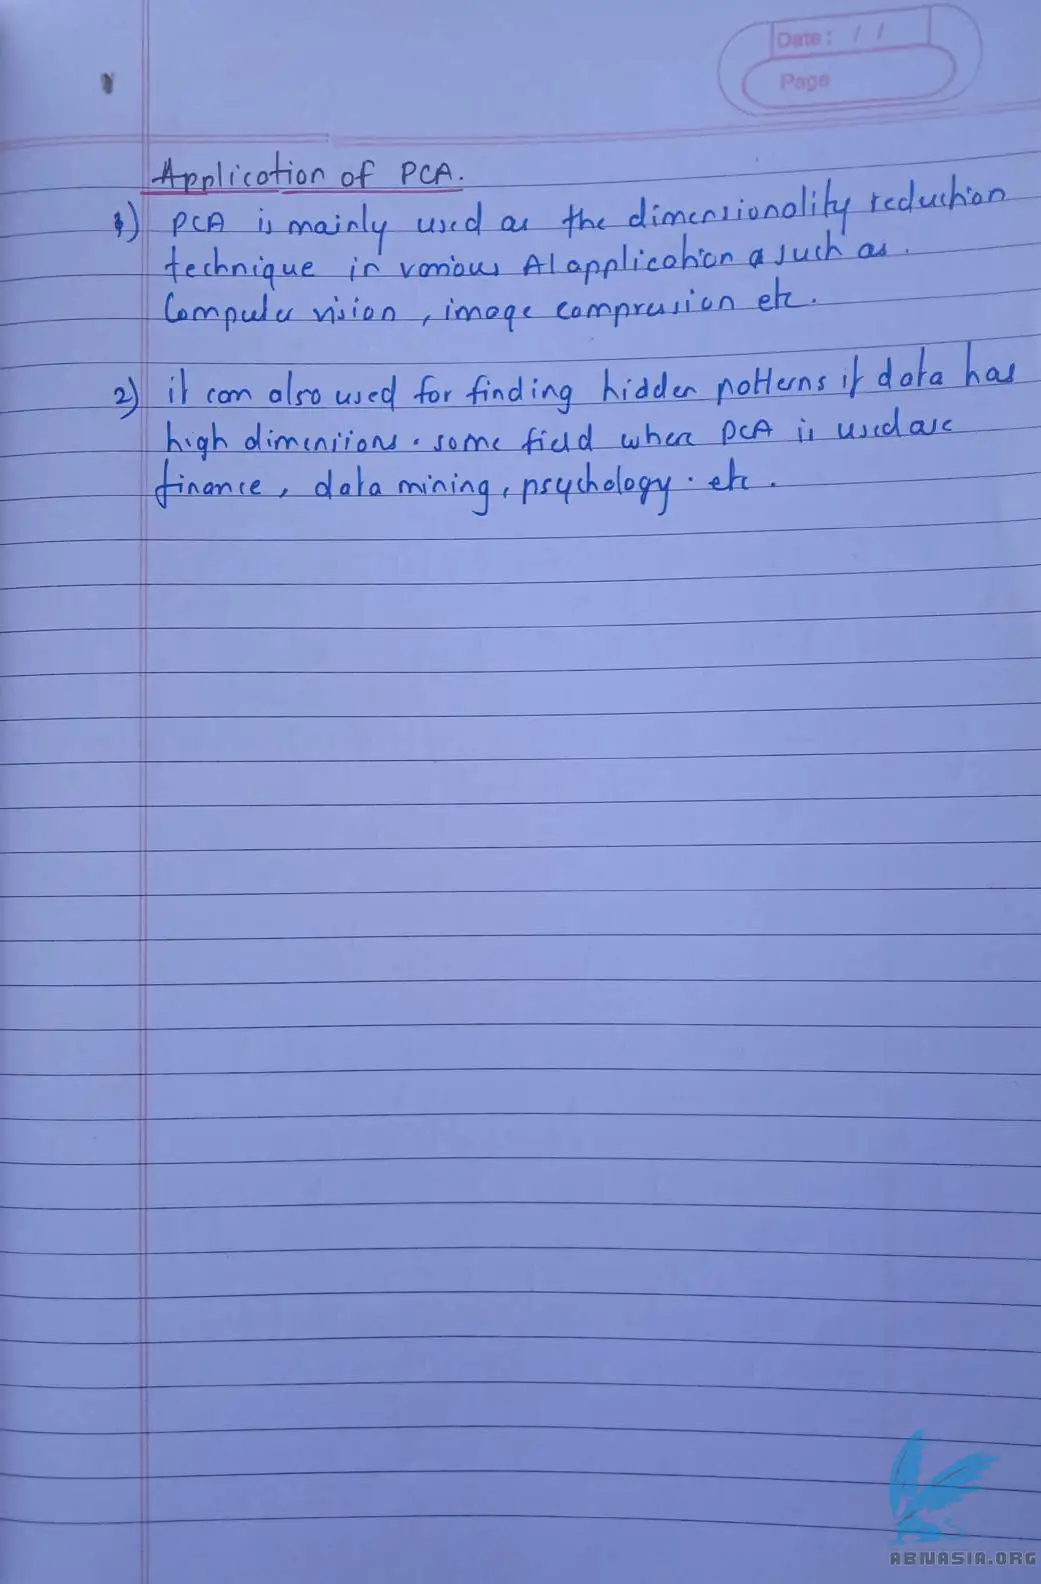 Date: / /
Page
Application of PCA.
1) PCA is mainly used as the dimensionality reduction
technique in various AI application such as.
Computer vision, image compression etc.
2) it can also used for finding hidden patterns if data has
high dimensions. some field where PCA is used are
finance, data mining, psychology. etc.
ABNASIA.ORG